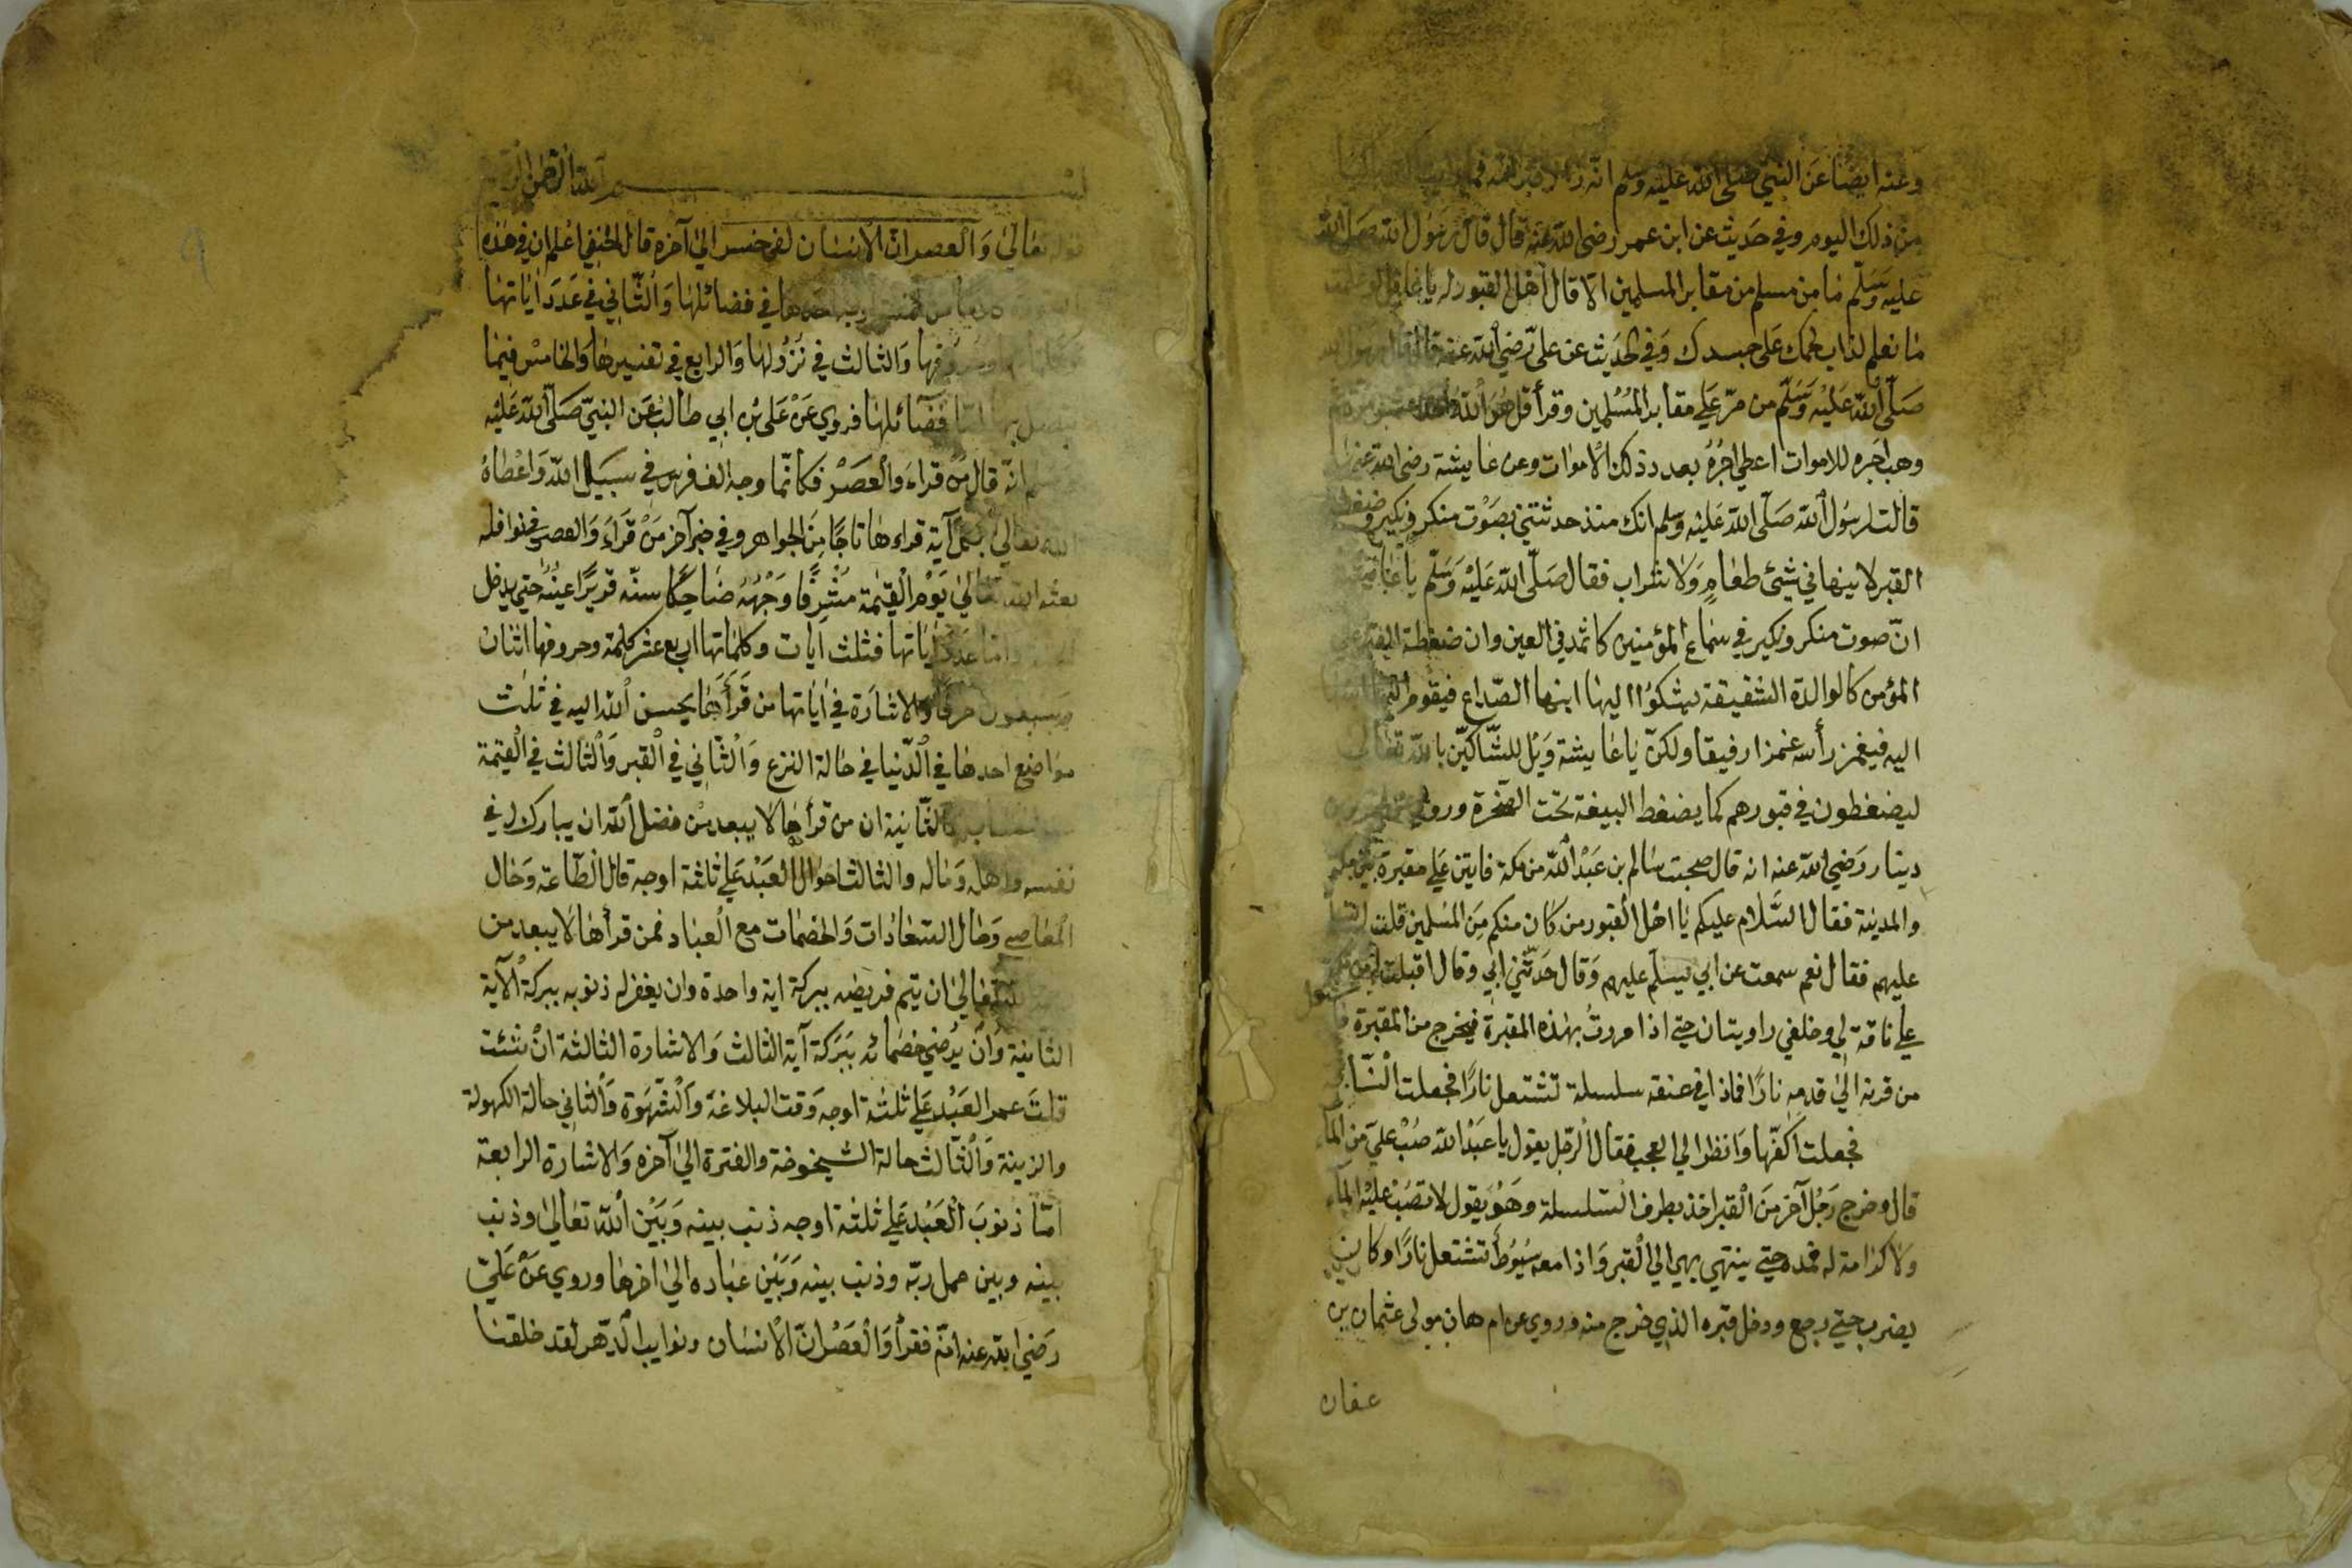 وعنه ايضا عن النبي صلى الله عليه وسلم انه
من ذلك اليوم وفي حديث عن ابن عمر رضي الله عنه قال قال رسول الله صلى الله
عليه وسلم ما من مسلم من مقابر المسلمين الا قال اهل القبور له يا غافل لو علمت
ما نعلم لذاب لحمك على جسدك وفي الحديث عن علي رضي الله عنه قال قال رسول الله
صلى الله عليه وسلم من مر على مقابر المسلمين وقرأ قل هو الله احد
وهب اجره للاموات اعطي اجره بعدد ذلك الاموات وعن عايشة رضي الله عنها
قالت لرسول الله صلى الله عليه وسلم انك منذ حدثتني بصوت منكر ونكير وضغطة
القبر لا ينهاني شيئ طعام ولا شراب فقال صلى الله عليه وسلم يا عايشة
ان صوت منكر ونكير في سماع المؤمنين كاثمد في العين وان ضغطة القبر على
المؤمن كالوالدة الشفيقة يشكوا اليها ابنها الصداع فيقوم
اليه فيغمز رأسه غمزا رفيقا ولكن يا عايشة ويل للشاكين بالله تعالى
ليضغطون في قبورهم كما يضغط البيضة تحت الصخرة وروي
دينار رضي الله عنه انه قال صحبت سالم بن عبد الله من مكة فاتين على مقبرة بين مكة
والمدينة فقال السلام عليكم يا اهل القبور من كان منكم من المسلمين قلت
عليهم فقال نعم سمعت عن ابي يسلم عليهم وقال حدثني ابي وقال اقبلت من مكة
على ناقة لي وخلفي راويتان حتى اذا مررت بهذه المقبرة فيخرج من المقبرة
من قرنه الى قدمه نارا فاذا في عنقه سلسلة تشتعل نارا فجعلت
فجعلت اكفها وانظر الى العجب فقال الرجل يقول يا عبد الله صب علي من الماء
قال وخرج رجل آخر من القبر اخذ بطرف السلسلة وهو يقول لا تصب عليه الماء
ولا كرامة له فمده حتى ينتهي بهي الى القبر واذا معه سيوط تشتعل نارا وكان
يضرب حتى رجع ودخل قبره الذي خرج منه وروي عن ام هان مولى عثمان بن
عفان
بسم الله الرحمن الرحيم
قوله تعالى والعصر ان الانسان لفي خسر الى آخره قال الحنفي اعلم ان في هذه
في فضائلها والثاني في عدد اياتها
والثالث في نزولها والرابع في تفسيرها والخامس فيما
فضائلها فروي عن علي بن ابي طالب عن النبي صلى الله عليه
وسلم انه قال من قراء والعصر فكانما وجه الف فرس في سبيل الله واعطاه
الله تعالى بكل آية قراءها تاجا من الجواهر وفي خبر آخر من قراء والعصر في نوافله
بعثه الله تعالى يوم القيمة مشرفا وجهه ضاحكا سنه قريرا عينه حتى يدخل
واما عدد اياتها فثلث ايات وكلماتها اربع عشر كلمة وحروفها اثنان
وسبعون حرفا والاشارة في اياتها من قرأ بها يحسن الله اليه في ثلث
مواضع احدها في الدنيا في حالة النزع والثاني في القبر والثالث في القيمة
والثانية ان من قرأها لا يبعد من فضل الله ان يبارك له في
نفسه واهله وماله والثالث احوال العبد على ثلثة اوجه قال الطاعة وحال
المعاصي وحال السعادات والخصمات مع العباد فمن قرأها لا يبعد من
تعالى ان يتم فريضه ببركة اية واحدة وان يغفر له ذنوبه ببركة الآية
الثانية وان يرضي خصمائه ببركة آية الثالث والاشارة الثالثة ان شئت
قلت عمر العبد على ثلثة اوجه وقت البلاغة والشهوة والثاني حالة الكهولة
والزينة والثالث حالة الشيخوخة والفترة الى آخره والاشارة الرابعة
اما ذنوب العبد على ثلثة اوجه ذنب بينه وبين الله تعالى وذنب
بينه وبين عمل ربه وذنب بينه وبين عباده الى اخرها وروي عن علي
رضي الله عنه انه فقرأ والعصر ان الانسان ونوايب الدهر لقد خلقنا